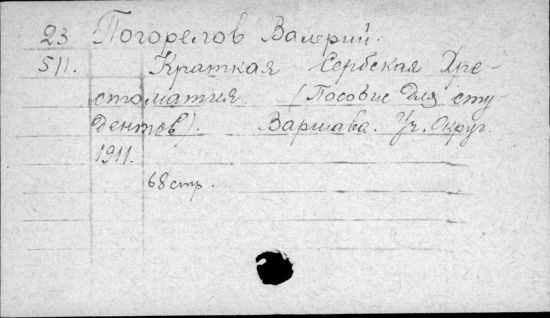 23 Погорелов Валерий.
511. Краткая Сербская Хре-
стоматия (Пособие для сту
дентов). Варшава. Уч. Округ.
1911.
68 стр.